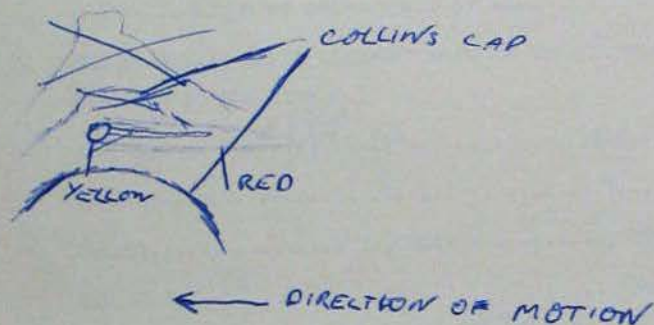 COLLINS CAP
RED
YELLOW
DIRECTION OF MOTION